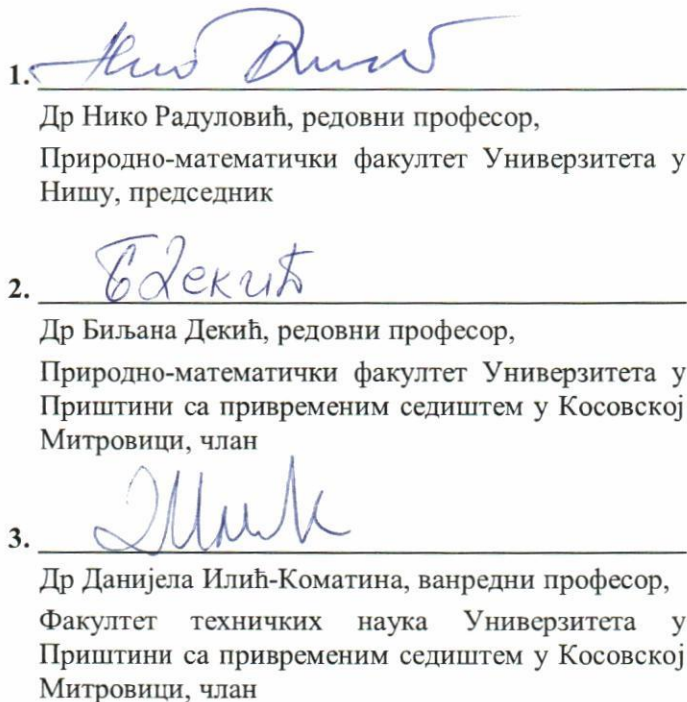 1.
Др Нико Радуловић, редовни професор,
Природно-математички факултет Универзитета у
Нишу, председник
2. Б Декић
Др Биљана Декић, редовни професор,
Природно-математички факултет Универзитета у
Приштини са привременим седиштем у Косовској
Митровици, члан
3.
Др Данијела Илић-Коматина, ванредни професор,
Факултет техничких наука Универзитета у
Приштини са привременим седиштем у Косовској
Митровици, члан